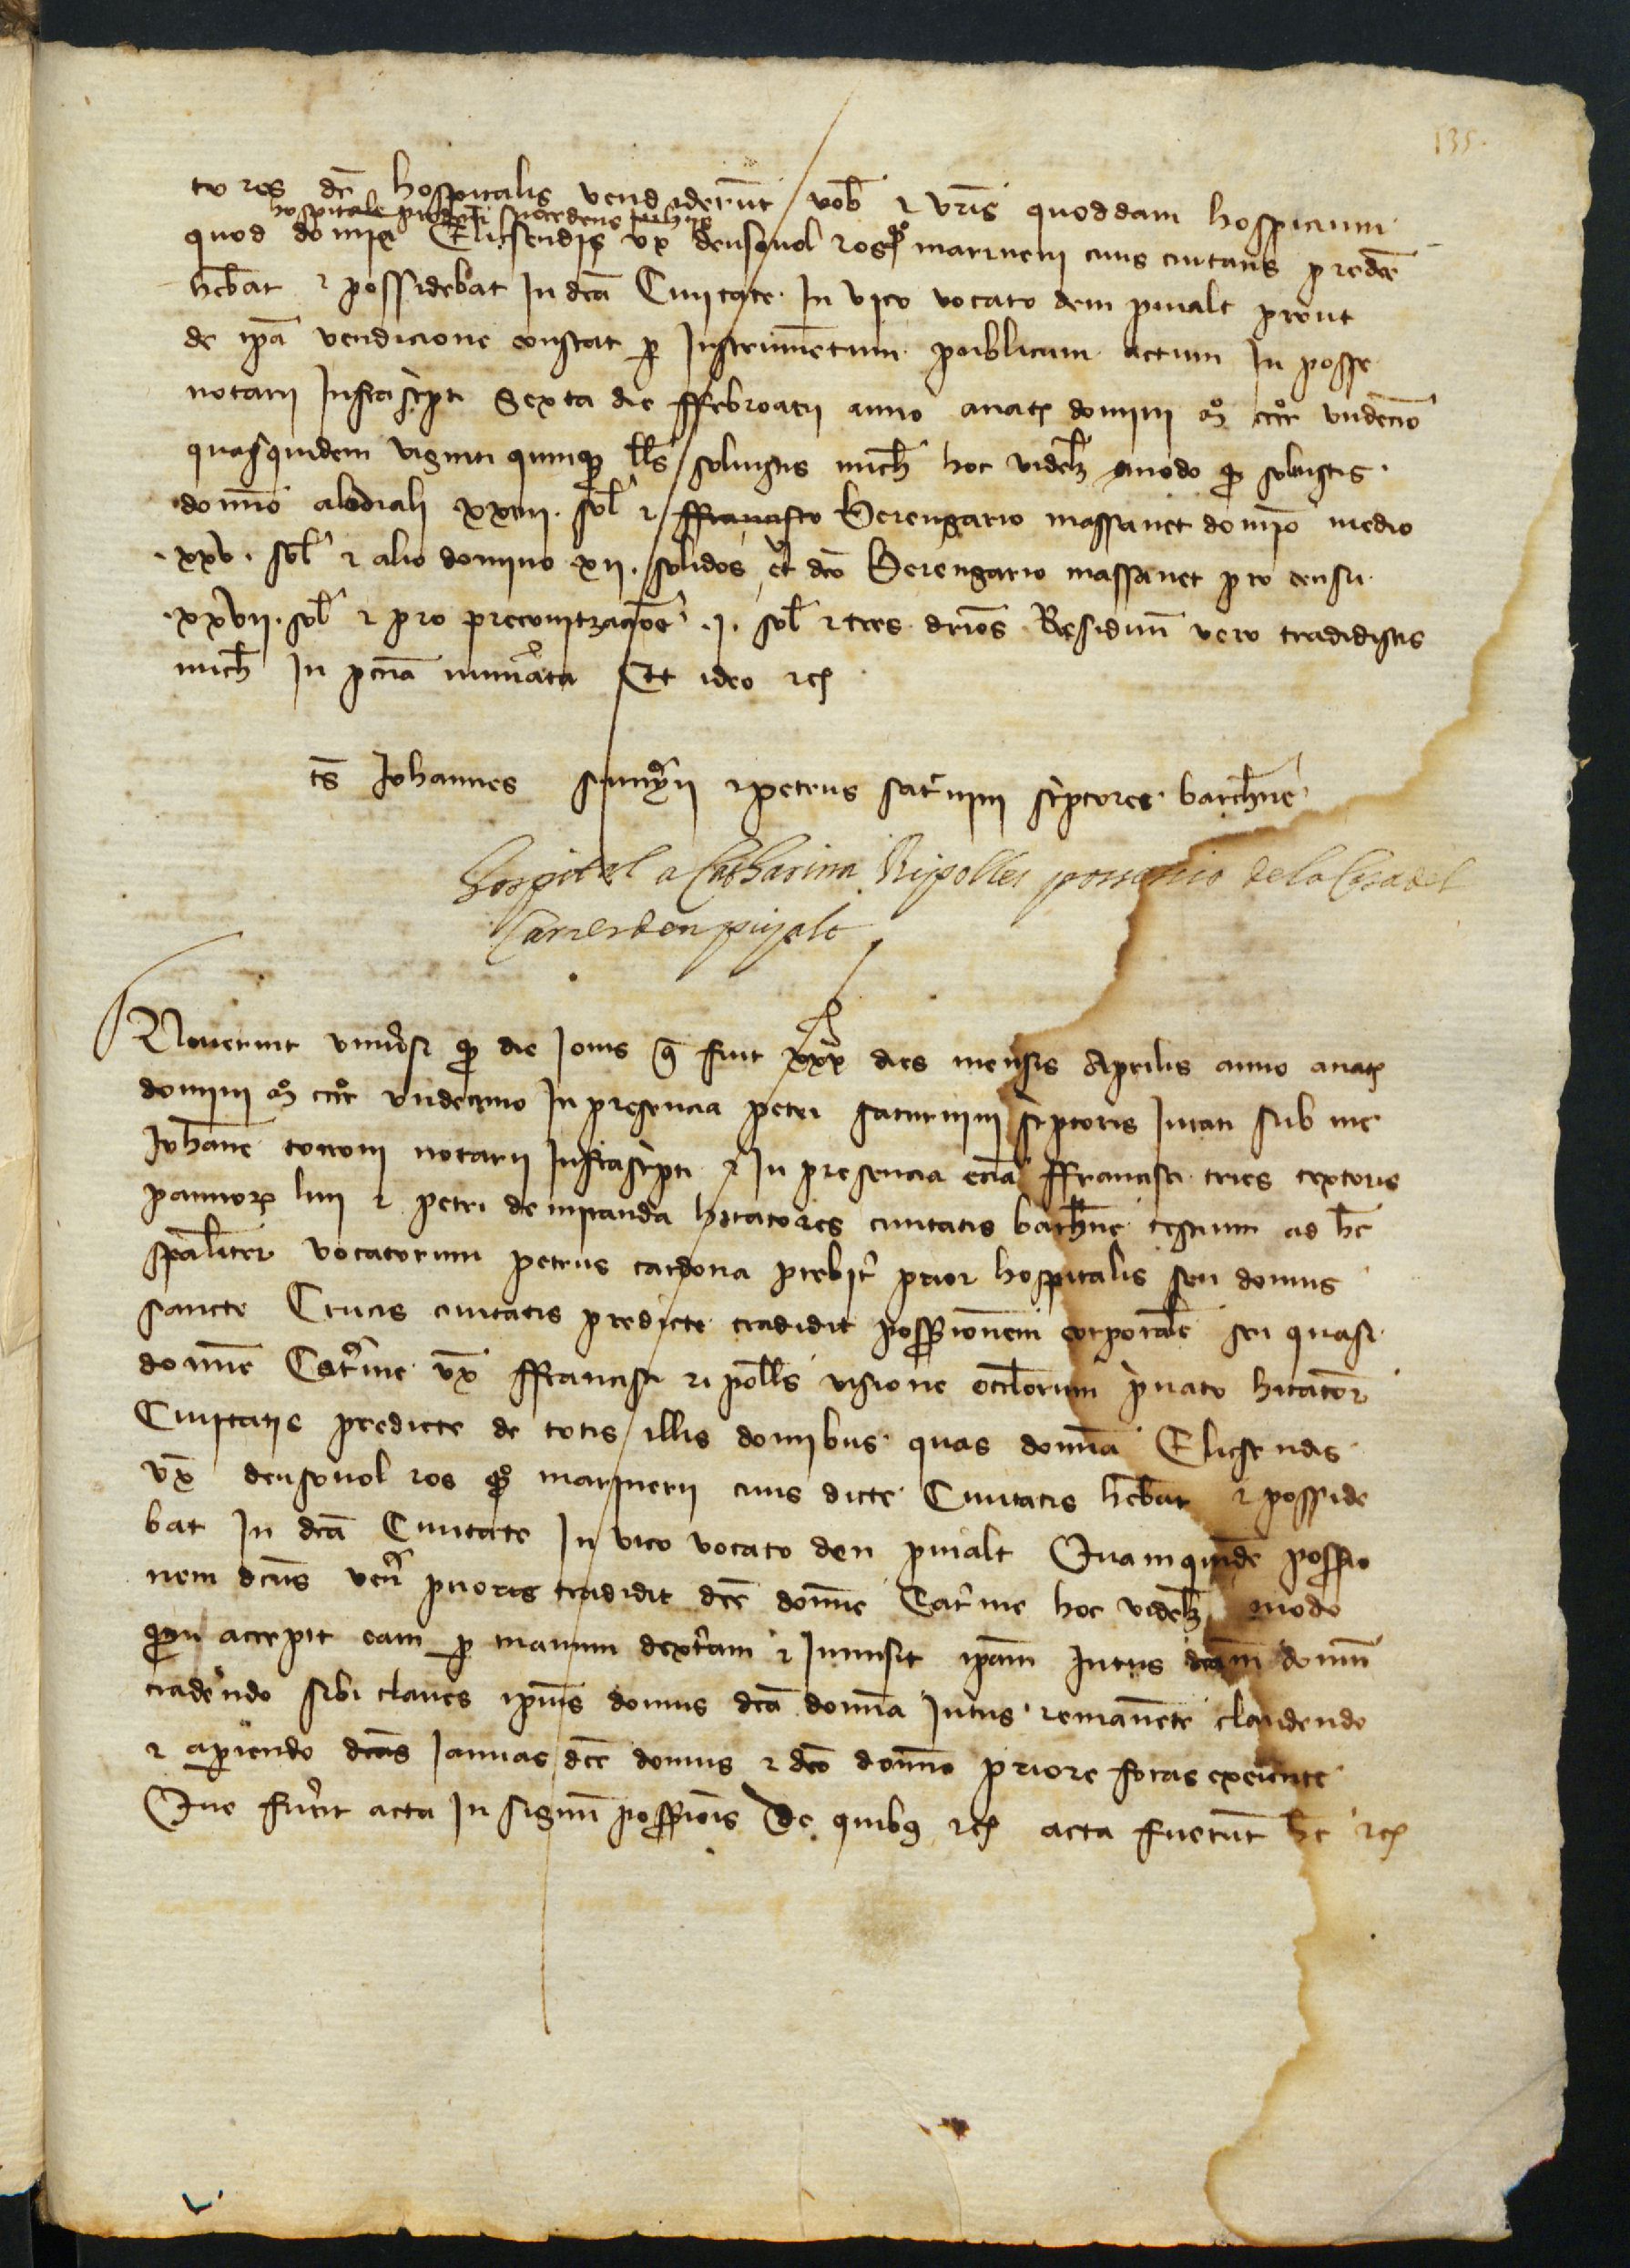 135.
tores dc̄i hospitalis vendiderūt vob̄ ⁊ vr̄is quoddam hospicium
hospitale predc̄i succedens
quod domina Elicsendis vx̄ densovol ros qº marinerii civis civitatis predc̄e
heb̄at ⁊ possidebat In dc̄a Civitate In vico vocato den puialt prout
de ip̄a vendicione constat p Instrumētum publicum actum In posse
notarii Infrasc̄pti Sexta die ffebroarii anno a natꝫ domini mº ccccº undecīo
quasquidem viginti quinqꝫ ll̄s solvistis mich̄ hoc videlꝫ modo qꝫ solvistis
dom̄o alodiali xxiii. sol̄ ⁊ ffrancisco Berengario massanet domīo medio
.xxv. sol̄ ⁊ alio domino xii. solidos et dc̄o Berengario massanet pro censu
.xxvii. sol̄ ⁊ pro preconitzacōe .j. sol̄ ⁊ tres dr̄ios Residuū vero tradidistis
mich̄ In pc̄nia num̄ata Et ideo ⁊cꝫ
ts̄ Johannes ⁊ petrus sat̄nini sc̄ptores barchn̄e
Hospital a Catharina Ripolles possessio de la Casa del
Carrer den puyalt
Noverint univ̄si qꝫ die Jovis q̄ fuit xxx dies mensis Aprilis anno a natꝫ
domini mº ccccº undecimo In presencia petri saturnini sc̄ptoris Jurati sub me
Joh̄ane torroni notarii Infrasc̄pti ⁊ In presencia ec̄ia ffrancisci tries textoris
pannorꝫ lini ⁊ petri de miranda hītatores civitatis barch̄ne testium ad h̄c
sp̄aliter vocatorum petrus cardona prebit̄ prior hospitalis seu domus
sancte Crucis civitatis predicte tradidit possessionem corporalē seu quasi
domne Cat̄ine vx̄ ffrancisci ripoll̄s visione oc̄lorum p̄vato hitator̄
Civitatis predicte de totis illis domibus quas domn̄a Elicsendis
vx̄ densovol ros qº marinerii civis dicte Civitatis heb̄at ⁊ posside
bat In dc̄a Civitate In vico vocato den puialt Quamquidē possessio
nem dc̄us ven̄ prioris tradidit dc̄e domne Cat̄ine hoc videlꝫ modo
qm accepit eam p manum dext̄am ⁊ Inmisit ip̄am Intus dc̄am domū
tradendo sibi claves ip̄ius domus dc̄a domn̄a Intus remanēte claudendo
⁊ apiendo dc̄as Januas dc̄e domus ⁊ dc̄o domno priore foras exeunte
Que fuer̄it acta In signū possessiōis De quibꝫ ⁊cꝫ acta fuerūt h̄c ⁊cꝫ